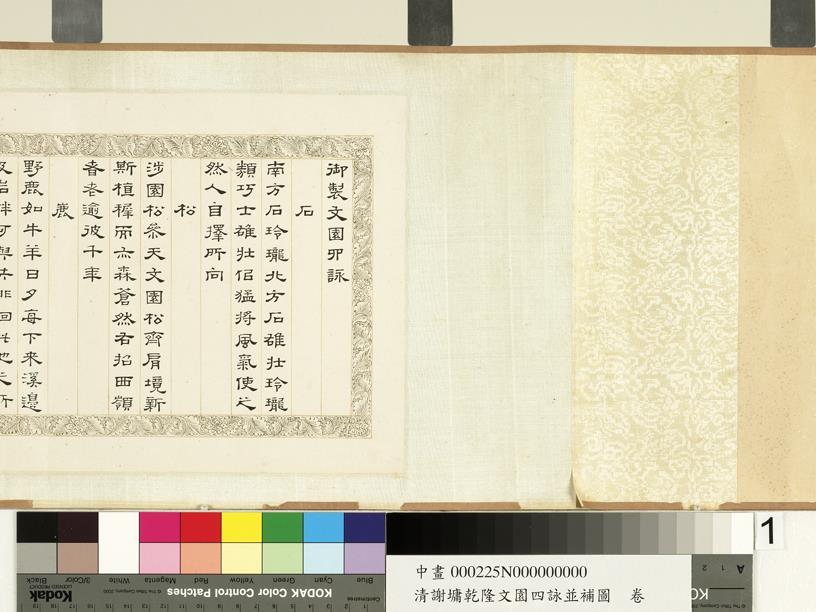 御製文園四詠
石
南方石玲瓏北方石雄壯玲瓏
類巧士雄壯侶猛將風氣使之
然人自擇所向
松
涉園松參天文園松齊肩境新
斯植穉而亦森蒼然右招西嶺
者老逾彼千年
鹿
野鹿如牛羊日夕每下來溪邊
1
中畫 000225N000000000
清謝墉乾隆文園四詠並補圖 卷
Blue Cyan Green Yellow Red Magenta White 3/Color Black
KODAK Color Control Patches
Kodak
LICENSED PRODUCT
Centimetres
A 1 2